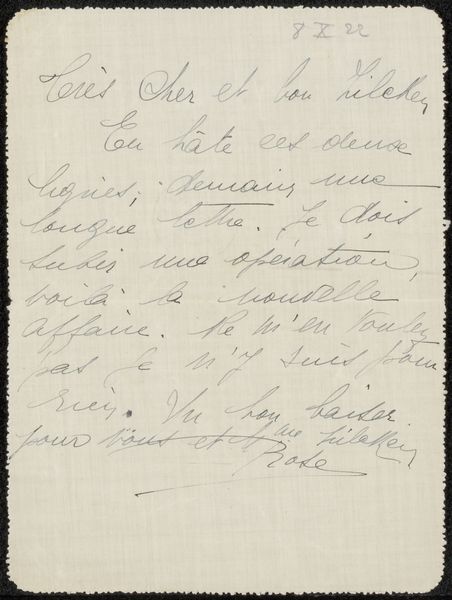 8 X 22
Très Cher et bon Zilcken
En hâte ces deux
lignes, demain une
longue lettre. Je dois
subir une opération,
voilà la nouvelle
affaire. Ne m'en voulez
pas je n'y suis pour
rien. Un bon baiser
pour vous et Mme Zilcken
Rose